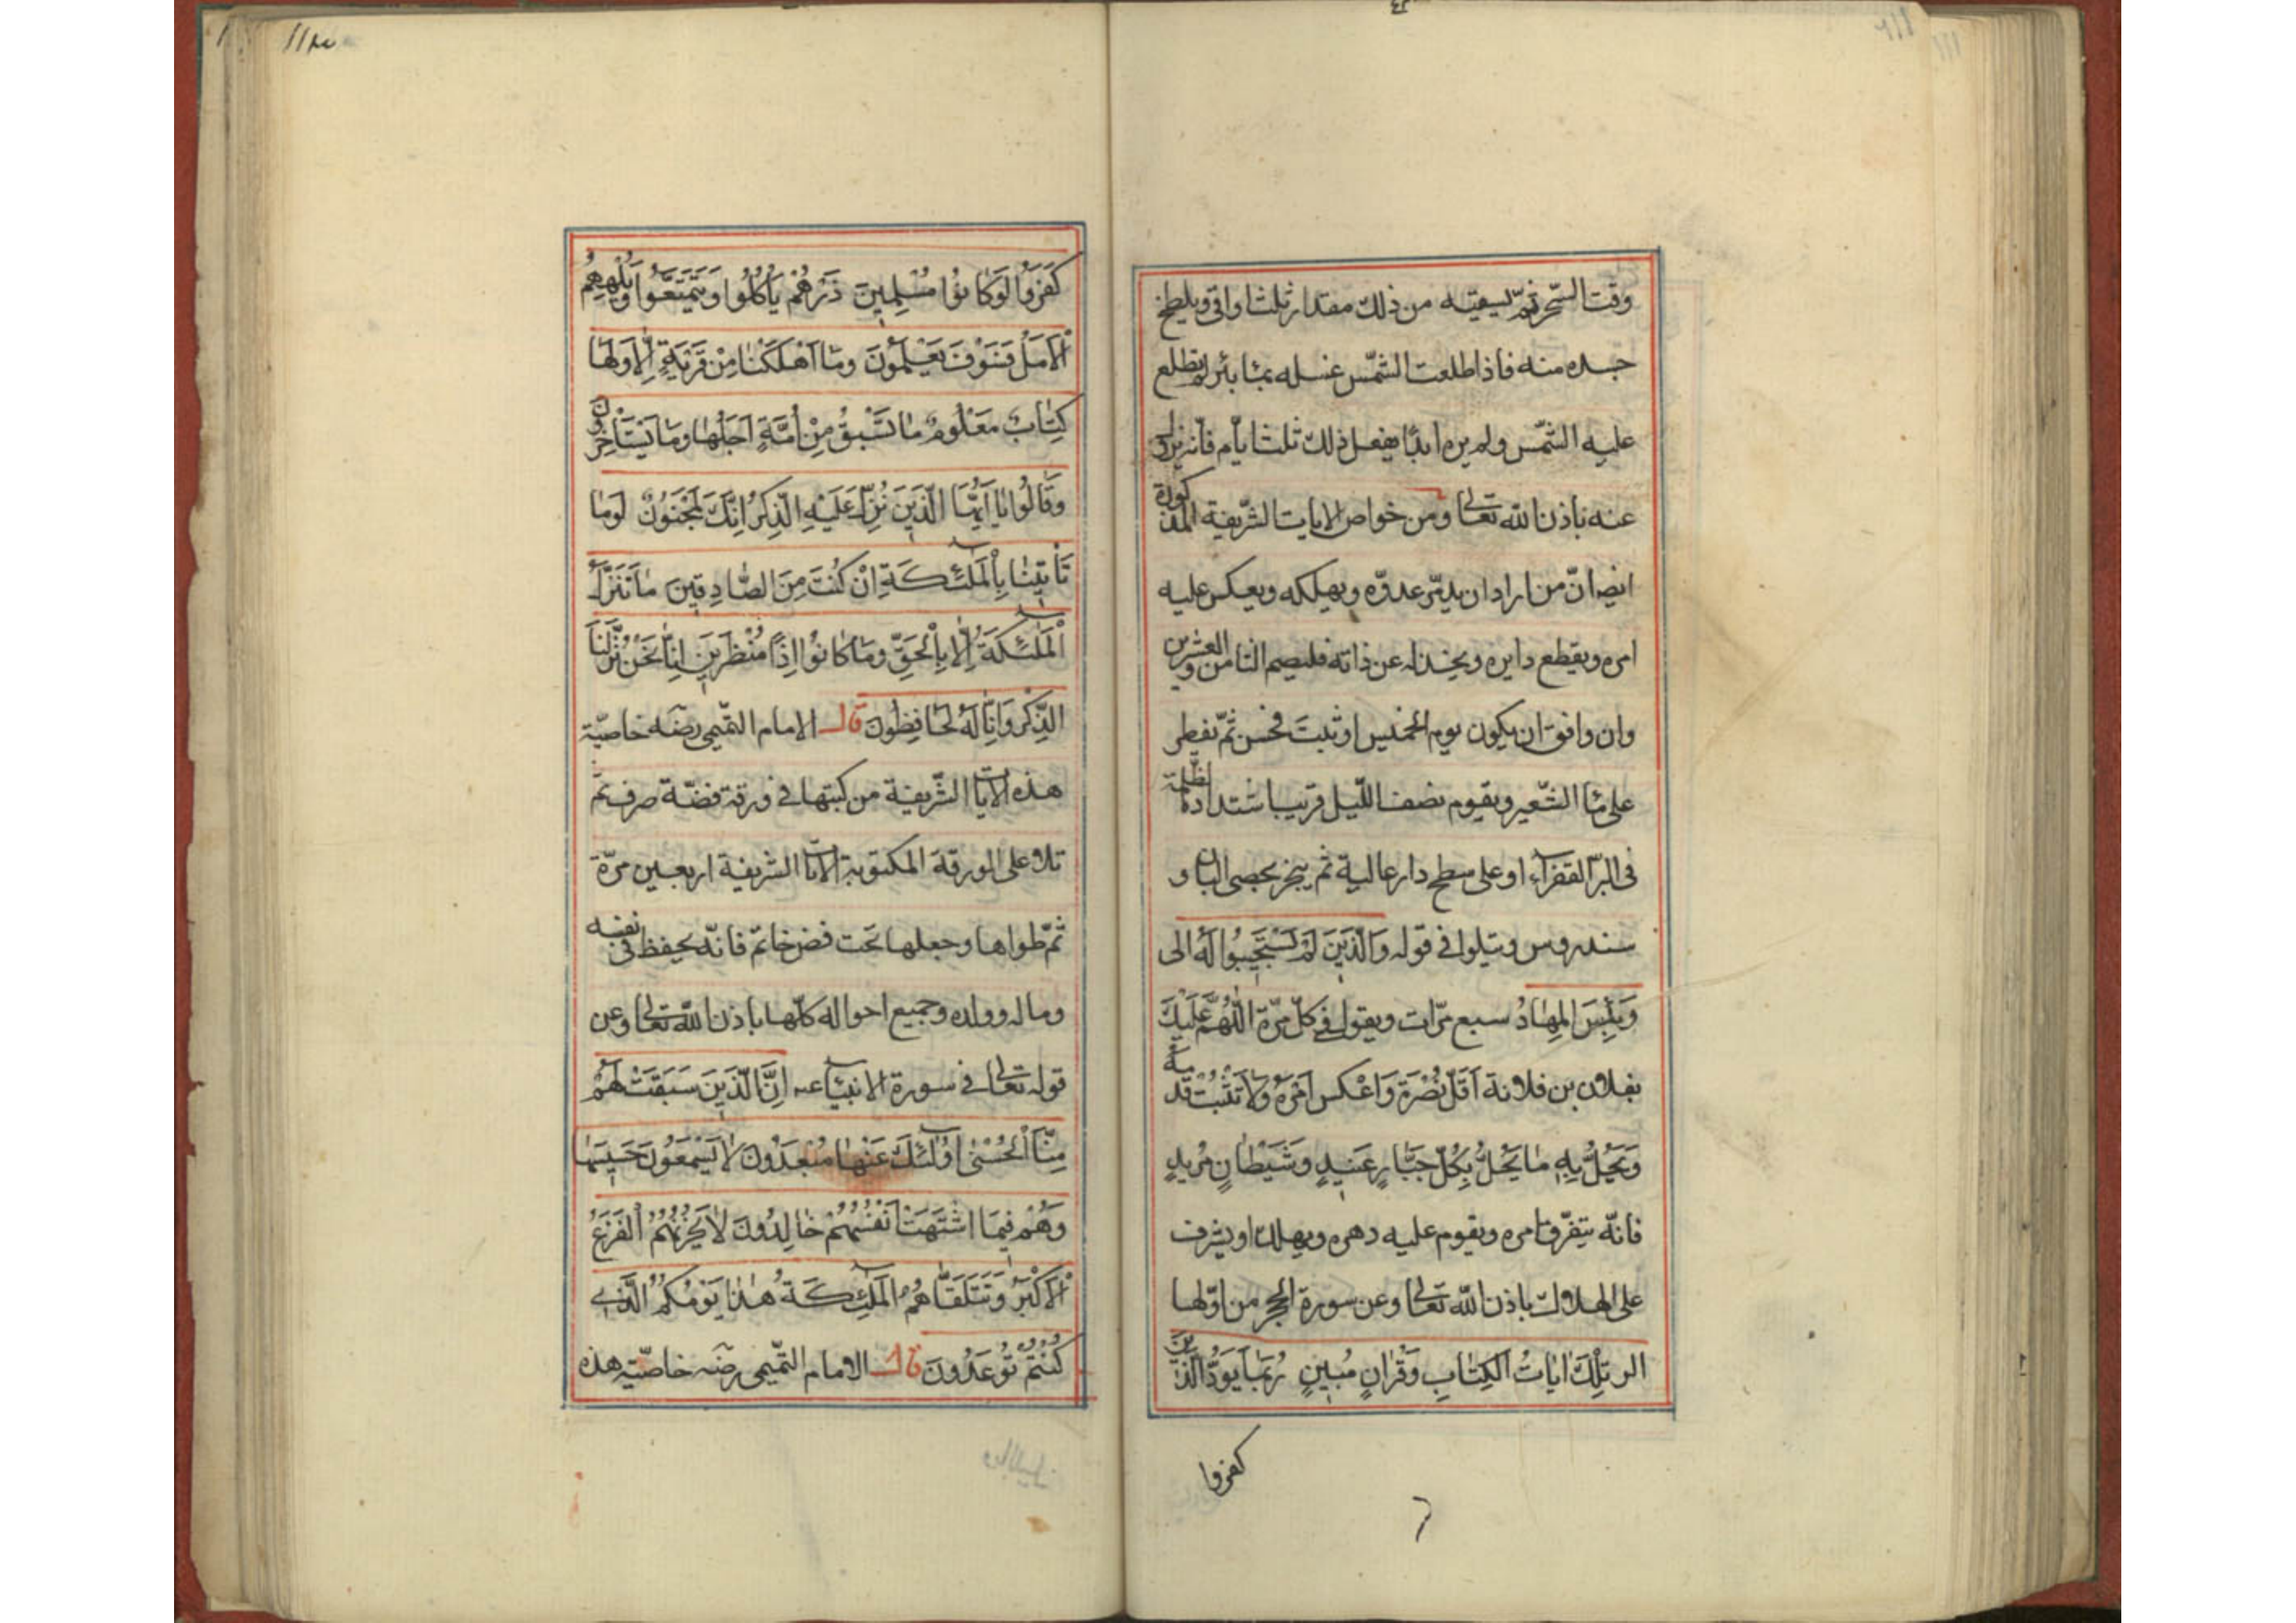 وقت السّحر ثمّ يسقيه من ذلك مقدار ثلث اواقى ويلطخ
جسده منه فاذا طلعت الشّمس غسله بماء بئر لم تطلع
عليه الشّمس ولم يره ابدًا يفعل ذلك ثلث ايّام فانّه يزول
عنه باذن الله تعالى ومن خواص الايات الشّريفة المذكورة
ايضا انّ من اراد ان يدمّر عدوّه ويهلكه ويعكس عليه
امره ويقطع دابره ويخذله عن ذاته فليصم الثامن والعشرين
وان وافق ان يكون يوم الخميس او ثبت فحسن ثمّ يفطر
على ماء الشّعير ويقوم نصف اللّيل قريب اشتداد الظلمة
فى البرّ القفراء او على سطح دار عالية ثم يبخر بحصى البان و
سندروس ويتلوا فى قوله وَالَّذِينَ لَمْ يَسْتَجِيبُوا لَهُ الى
وَبِئْسَ الْمِهَادُ سبع مرّات ويقول فى كلّ مرّة اللّٰهُمَّ عَلَيْكَ
بفلان بن فلانة اَقِلَّ نُصْرَهُ وَاعْكِس اَمْرَهُ وَلَا تُثَبِّتْ قَدَمَهُ
وَيَحُلُّ بِهِ مَا يَحُلُّ بِكُلِّ جَبَّارٍ عَنِيدٍ وَشَيْطَانٍ مَرِيدٍ
فانّه يتفرّق امره ويقوم عليه دهره ويهلك او يشرف
على الهلاك باذن الله تعالى وعن سورة الحجر من اوّلها
الر تِلْكَ اٰيَاتُ الْكِتَابِ وَقُرْاٰنٍ مُبِينٍ رُبَمَا يَوَدُّ الَّذِينَ
كفروا
١١٣
كَفَرُوا لَوْ كَانُوا مُسْلِمِينَ ذَرْهُمْ يَأْكُلُوا وَيَتَمَتَّعُوا وَيُلْهِهِمُ
الْاَمَلُ فَسَوْفَ يَعْلَمُونَ وَمَا اَهْلَكْنَا مِنْ قَرْيَةٍ اِلَّا وَلَهَا
كِتَابٌ مَعْلُومٌ مَا تَسْبِقُ مِنْ اُمَّةٍ اَجَلَهَا وَمَا يَسْتَأْخِرُونَ
وَقَالُوا يَا اَيُّهَا الَّذِي نُزِّلَ عَلَيْهِ الذِّكْرُ اِنَّكَ لَمَجْنُونٌ لَوْمَا
تَأْتِينَا بِالْمَلٰئِكَةِ اِنْ كُنْتَ مِنَ الصَّادِقِينَ مَا نُنَزِّلُ
الْمَلٰئِكَةَ اِلَّا بِالْحَقِّ وَمَا كَانُوا اِذًا مُنْظَرِينَ اِنَّا نَحْنُ نَزَّلْنَا
الذِّكْرَ وَاِنَّا لَهُ لَحَافِظُونَ قال الامام التّميمى رضه خاصيّة
هذه الايات الشّريفة من كتبها فى ورقة فضّة صرف ثمّ
تلا على الورقة المكتوبة الايات الشريفة اربعين مرّة
ثمّ طواها وجعلها تحت فصّ خاتم فانّه يحفظ فى نفسه
وماله وولده وجميع احواله كلّها باذن الله تعالى وعن
قوله تعالى فى سورة الانبياء عم اِنَّ الَّذِينَ سَبَقَتْ لَهُمْ
مِنَّا الْحُسْنٰى اُولٰئِكَ عَنْهَا مُبْعَدُونَ لَا يَسْمَعُونَ حَسِيسَهَا
وَهُمْ فِيمَا اشْتَهَتْ اَنْفُسُهُمْ خَالِدُونَ لَا يَحْزُنُهُمُ الْفَزَعُ
الْاَكْبَرُ وَتَتَلَقَّاهُمُ الْمَلٰئِكَةُ هٰذَا يَوْمُكُمُ الَّذِى
كُنْتُمْ تُوعَدُونَ قال الامام التّميمى رضه خاصيّة هذه